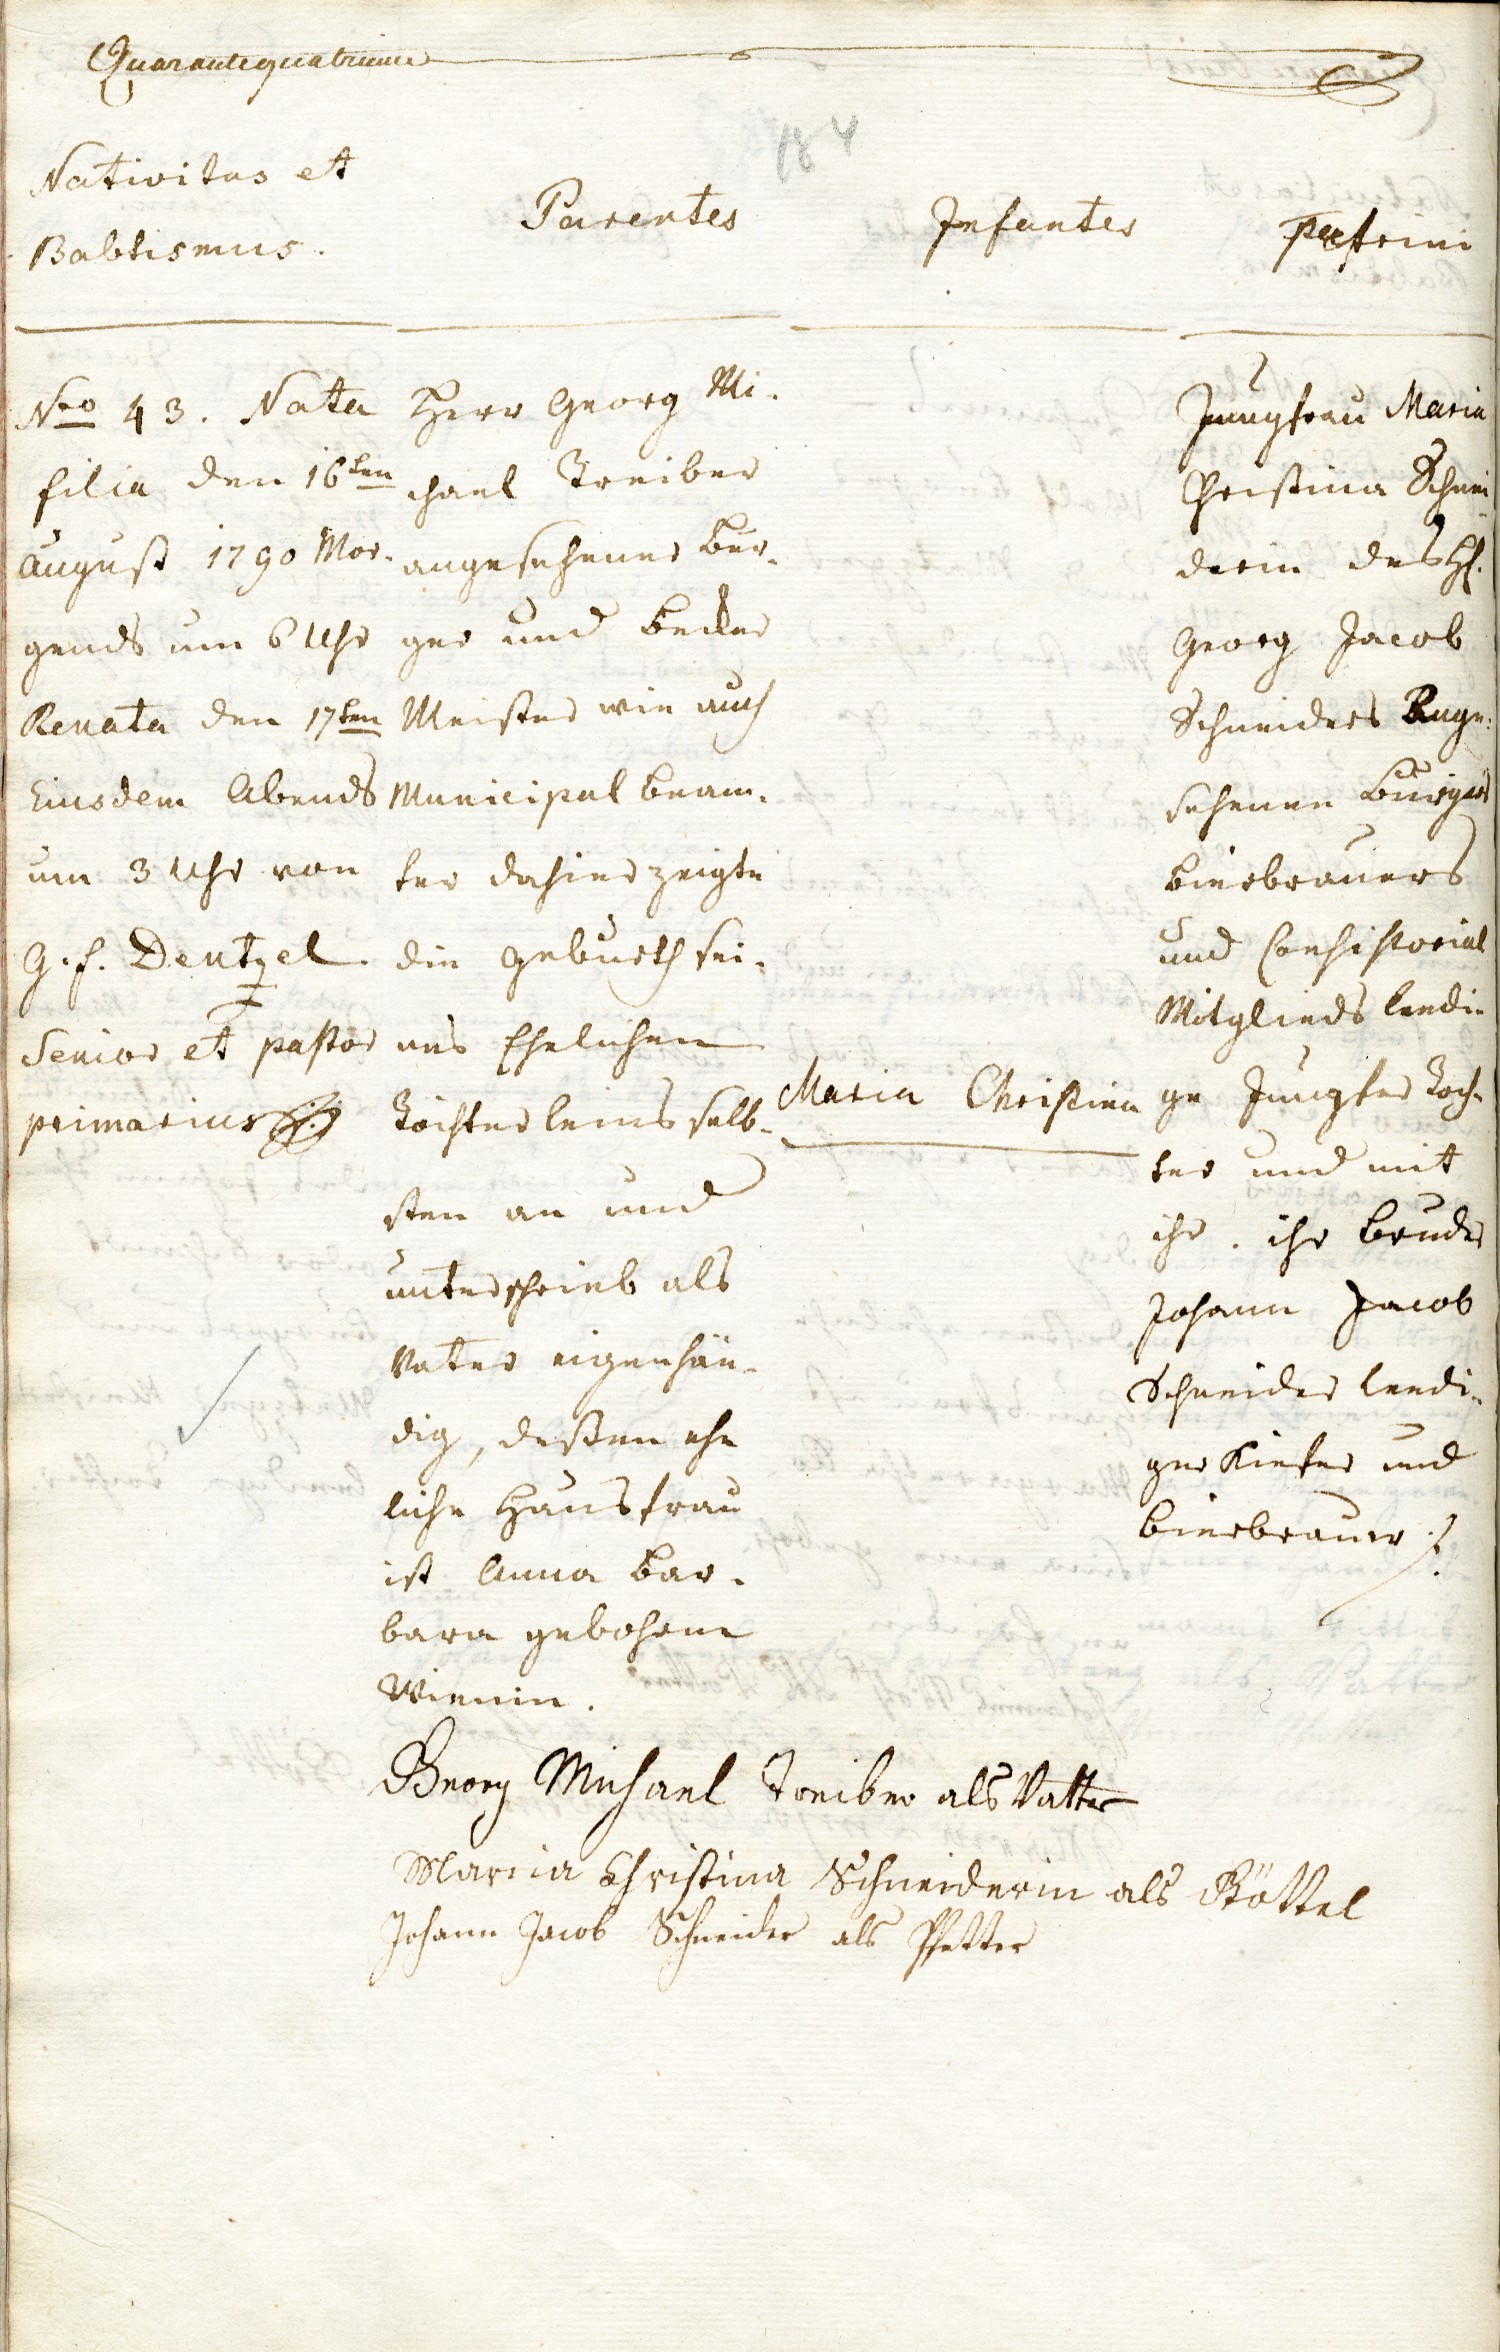 Quarantequatrieme
184
Nativitas et
Babtismus.
Parentes
Infantes
Patrini
Nro 43. Nata
filia den 16ten
August 1790 Mor-
gends um 6 Uhr
Renata den 17ten
Eiusdem Abends
um 3 Uhr von
G. f. Dentzel.
Senior et pastor
primarius
Herr Georg Mi-
chael Treiber
angesehener Bur-
ger und Becker
Meister wie auch
Municipal beam-
ter dahier zeigte
die Geburth sei-
nes Ehelichen
Töchterleins selb-
sten an und
unterschrieb als
Vater eigenhän-
dig, deßen ehe
liche Hausfrau
ist Anna Bar-
bara gebohrne
Wienin.
Maria Christina
Jungfrau Maria
Christina Schnei-
derin des H.
Georg Jacob
Schneiders Ange-
sehenen Bürgers
Bierbrauers
und Consistorial
Mitglieds leedi-
ge Jungfer Toch-
ter und mit
ihr. ihr Bruder
Johann Jacob
Schneider leedi-
ger Kiefer und
Bierbrauer
Georg Michael Treiber als Vatter
Mariia Christina Schneiderin als Göttel
Johann Jacob Schneider als Pfetter